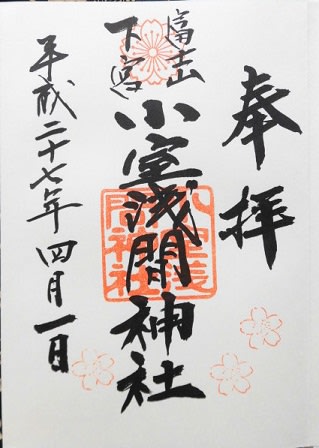 奉拝
富士山
下宮
小室浅間神社
小室浅
間神社
平成二十七年四月一日